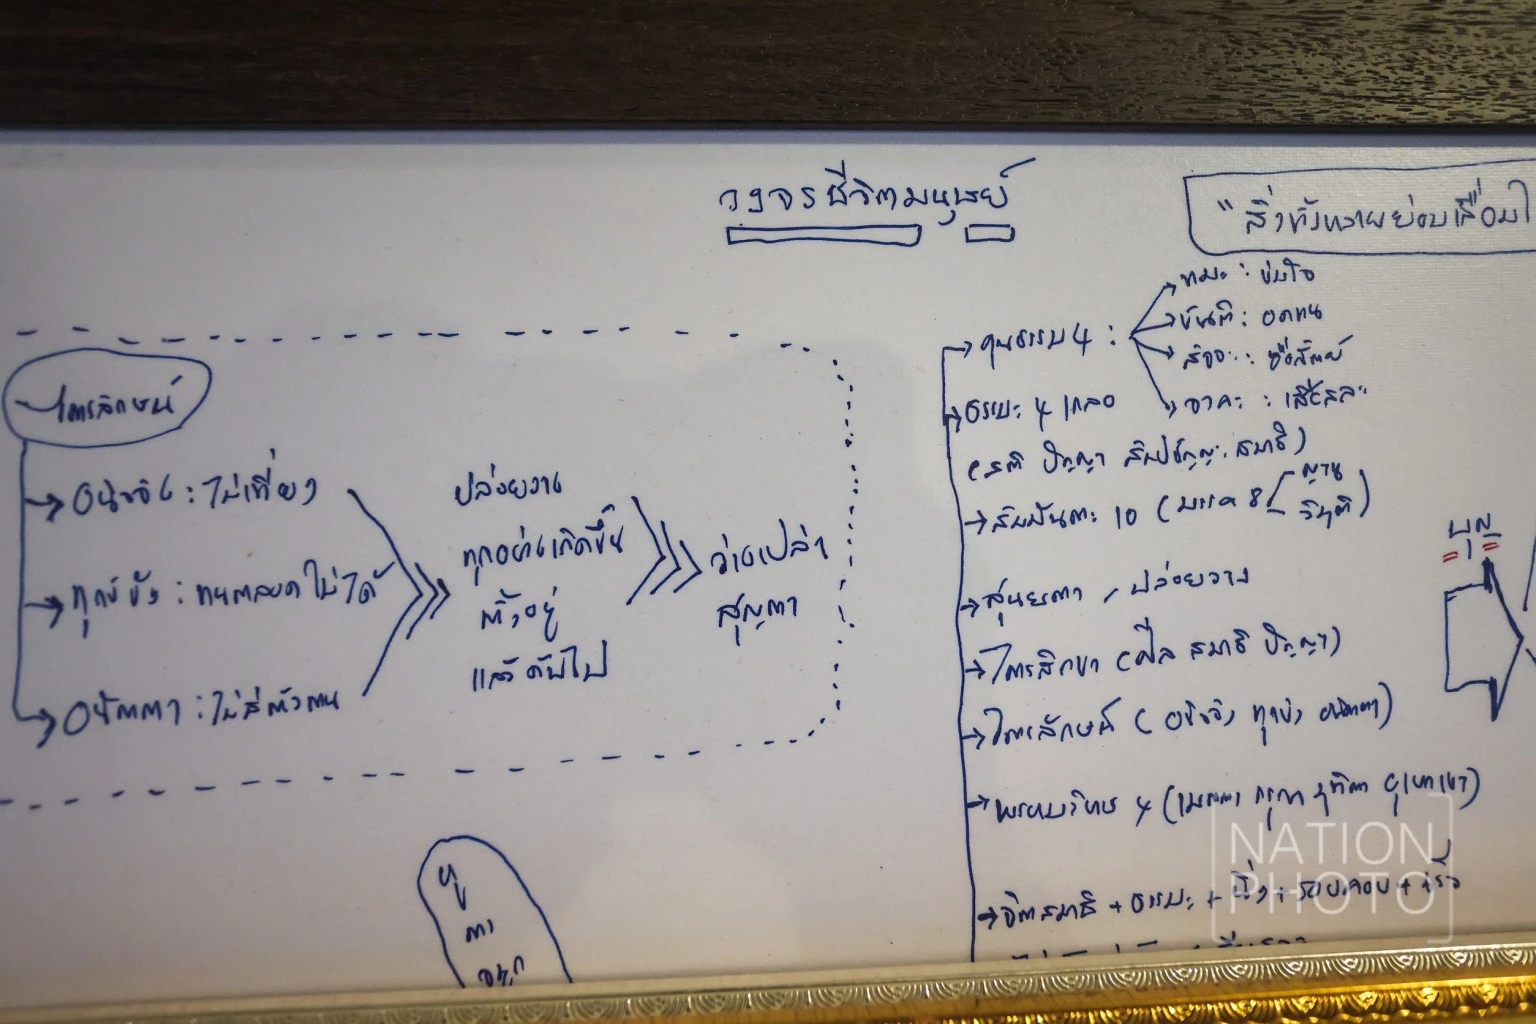 วงจรชีวิตมนุษย์
"สิ่งทั้งหลายย่อมเสื่อมไ
ไตรลักษณ์
อนิจจัง : ไม่เที่ยง
ทุกข์ขัง : ทนตลอดไม่ได้
อนัตตา : ไม่มีตัวตน
ปล่อยวาง
ทุกอย่างเกิดขึ้น
ตั้งอยู่
แล้วดับไป
ว่างเปล่า
สุญตา
หู
ตา
จมูก
คุณธรรม 4 :
ทมะ : ข่มใจ
ขันติ : อดทน
สัจจะ : ซื่อสัตย์
จาคะ : เสียสละ
ธรรมะ 4 เกลอ
(สติ ปัญญา สัมปชัญญะ สมาธิ)
สัมมัตตะ 10 (มรรค 8 ญาน วิมุติ)
สุนยตา , ปล่อยวาง
ไตรสิกขา (ศีล สมาธิ ปัญญา)
ไตรลักษณ์ (อนิจจัง ทุกขัง อนัตตา)
พรหมวิหาร 4 (เมตตา กรุณา มุทิตา อุเบกขา)
จิตสมาธิ + ธรรมะ + นิ่ง + รอบคอบ + เร็ว
บุญ
NATION
PHOTO